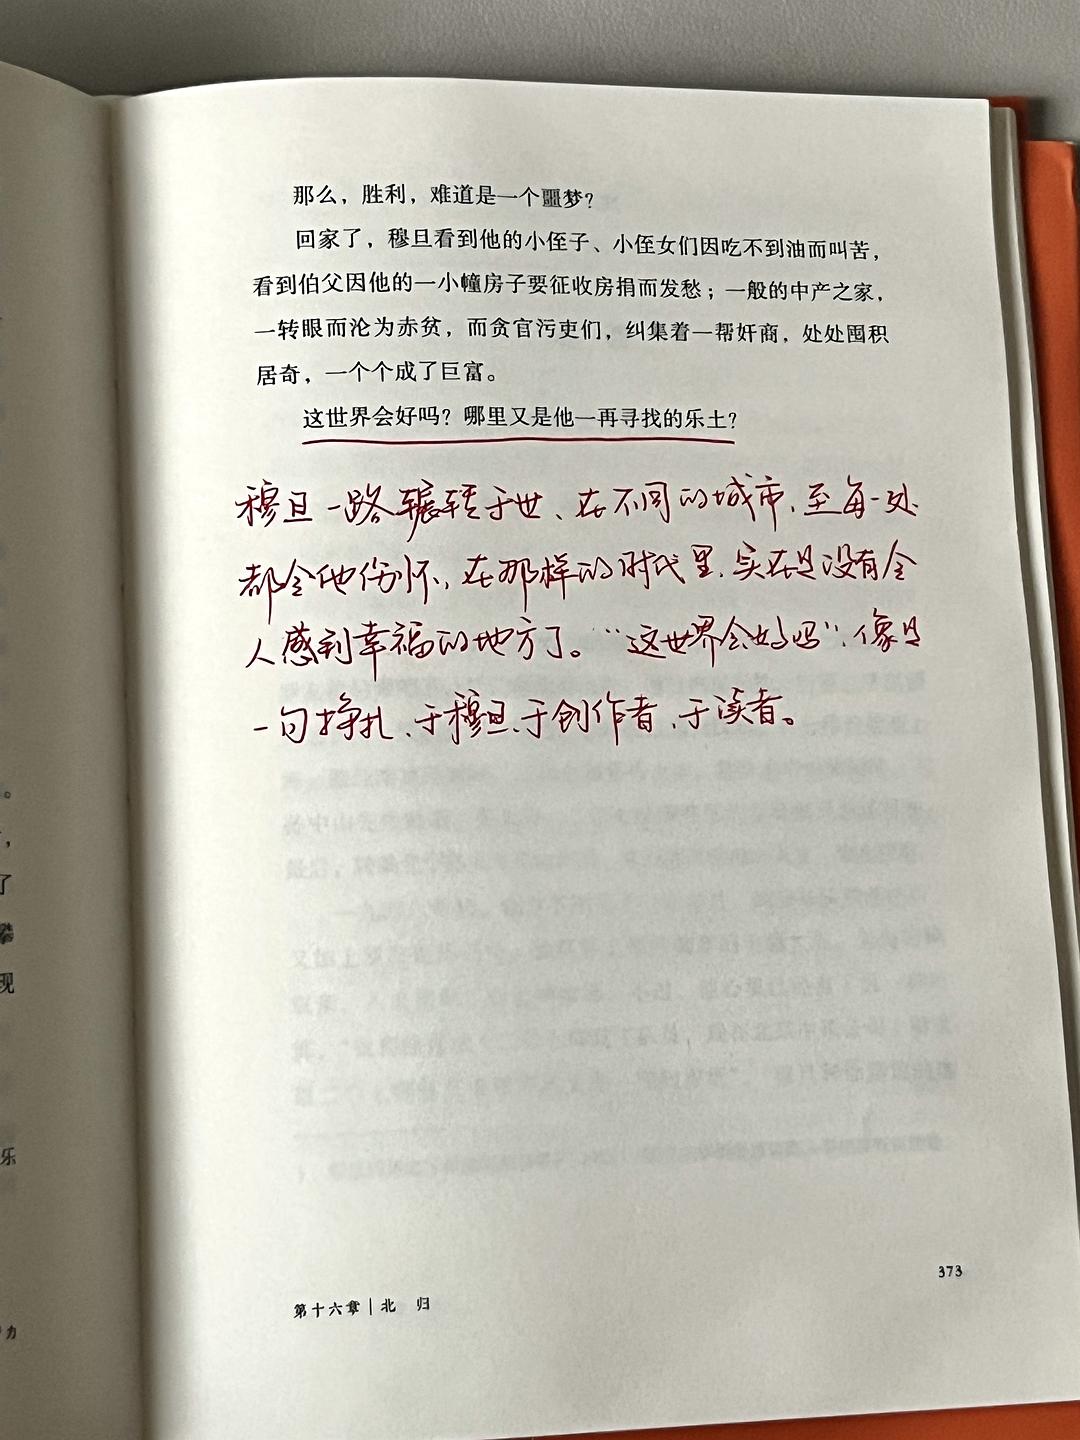 那么，胜利，难道是一个噩梦？
回家了，穆旦看到他的小侄子、小侄女们因吃不到油而叫苦，
看到伯父因他的一小幢房子要征收房捐而发愁；一般的中产之家，
一转眼而沦为赤贫，而贪官污吏们，纠集着一帮奸商，处处囤积
居奇，一个个成了巨富。
这世界会好吗？哪里又是他一再寻找的乐土？
穆旦一路辗转于世、在不同的城市，至每一处
都令他伤怀，在那样的时代里，实在是没有令
人感到幸福的地方了。“这世界会好吗”，像是
一句挣扎、于穆旦、于创作者、于读者。
。
，
了
攀
现
乐
力
373
第十六章｜北 归